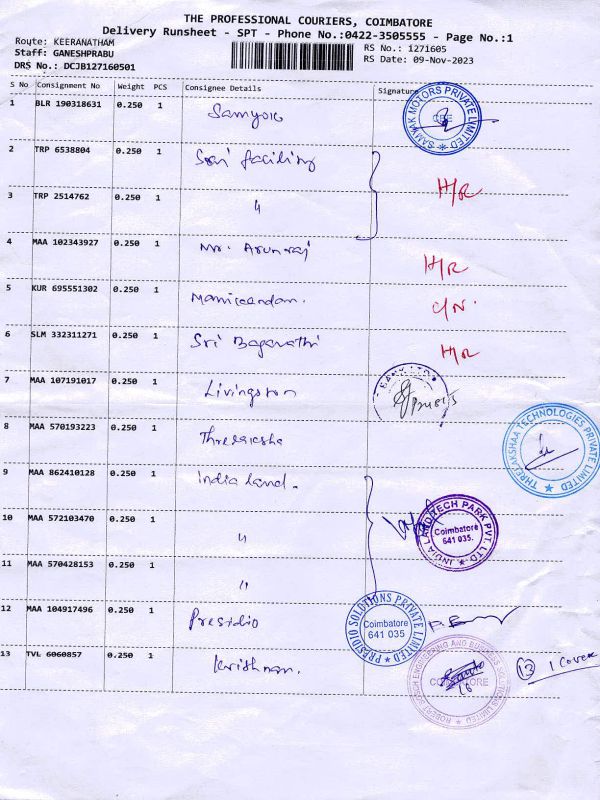 THE PROFESSIONAL COURIERS, COIMBATORE
Delivery Runsheet - SPT - Phone No.:0422-3505555 - Page No.:1
Route: KEERANATHAM
RS No.: 1271605
Staff: GANESHPRABU
RS Date: 09-Nov-2023
DRS No.: DCJB127160501
S No Consignment No Weight PCS Consignee Details Signature
1 BLR 190318631 0.250 1
SAMVAK MOTORS PRIVATE LIMITED
CBE
2 TRP 6538804 0.250 1
H/R
3 TRP 2514762 0.250 1 "
4 MAA 102343927 0.250 1 Mr. Arunraj H/R
5 KUR 695551302 0.250 1 C/N.
6 SLM 332311271 0.250 1 Sri Bagavathi H/R
7 MAA 107191017 0.250 1 Livingston
BANK LTD
8 MAA 570193223 0.250 1
THREEAKSHAA TECHNOLOGIES PRIVATE LIMITED
9 MAA 862410128 0.250 1 India Land.
10 MAA 572103470 0.250 1 "
INDIA LAND TECH PARK PVT. LTD.
Coimbatore
641 035.
11 MAA 570428153 0.250 1 "
12 MAA 104917496 0.250 1 Presidio
PRESIDIO SOLUTIONS PRIVATE LIMITED
Coimbatore
641 035
13 TVL 6060857 0.250 1 Krishnan.
ROBERT BOSCH ENGINEERING AND BUSINESS SOLUTIONS LIMITED
COIMBATORE
16
13 1 Cover